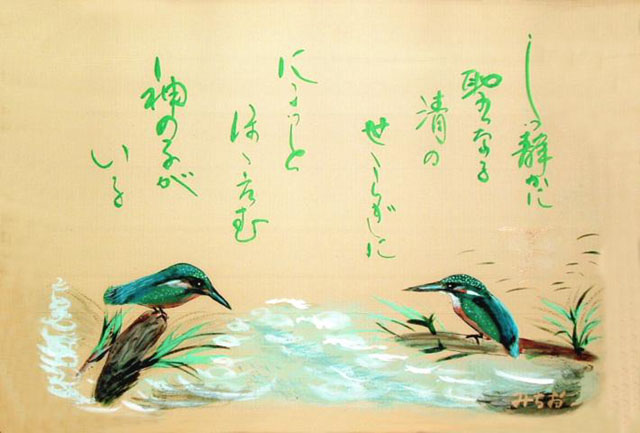 しーっ静かに
聖なる
清の
せゝらぎに
にこっと
ほゝ笑む
神の子が
いる
みちお